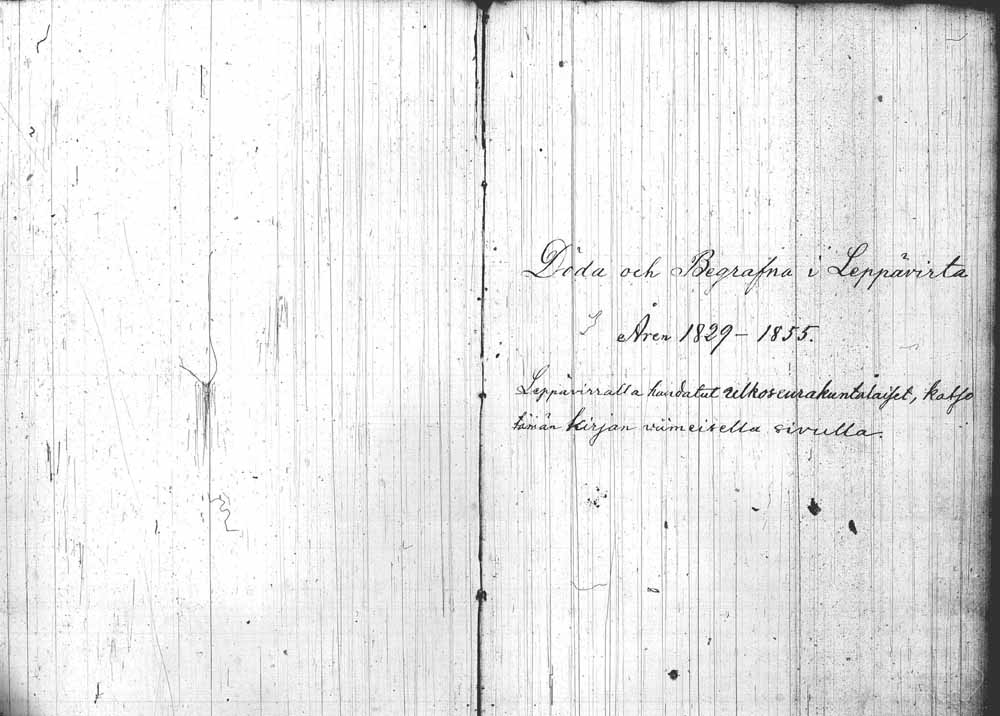 Döda och Begrafna i Leppävirta
Åren 1829 – 1855.
Leppävirralla haudatut ulkoseurakuntalaiset, katso
tämän kirjan viimeisellä sivulla.